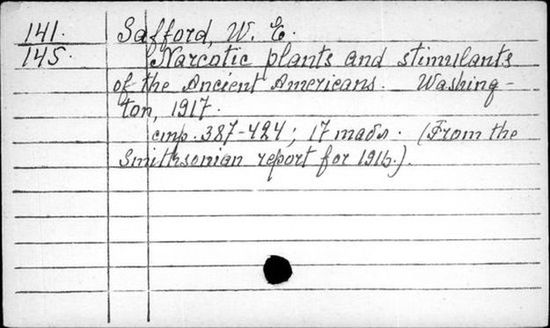 141. Safford, W. E.
145. Narcotic plants and stimulants
of the Ancient Americans. Washing-
ton, 1917.
стр. 387-424; 17 табл. (From the
Smithsonian report for 1916.).